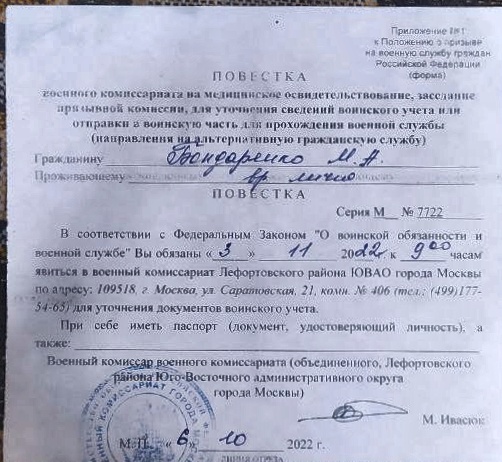 Приложение №1
к Положению о призыве
на военную службу граждан
Российской Федерации
(форма)
ПОВЕСТКА
военного комиссариата на медицинское освидетельствование, заседание
призывной комиссии, для уточнения сведений воинского учета или
отправки в воинскую часть для прохождения военной службы
(направления на альтернативную гражданскую службу)
Гражданину Бондаренко М. А.
Проживающему вр. лично
ПОВЕСТКА
Серия М № 7722
В соответствии с Федеральным Законом "О воинской обязанности и
военной службе" Вы обязаны « 3 » 11 2022г. к 9 00 часам
явиться в военный комиссариат Лефортовского района ЮВАО города Москвы
по адресу: 109518, г. Москва, ул. Саратовская, 21, комн. № 406 (тел.: (499)177-
54-65) для уточнения документов воинского учета.
При себе иметь паспорт (документ, удостоверяющий личность), а
также:
Военный комиссар военного комиссариата (объединенного, Лефортовского
района Юго-Восточного административного округа
города Москвы)
М. Ивасюк
М.П. « 6 » 10 2022 г.
ЛИНИЯ ОТРЕЗА